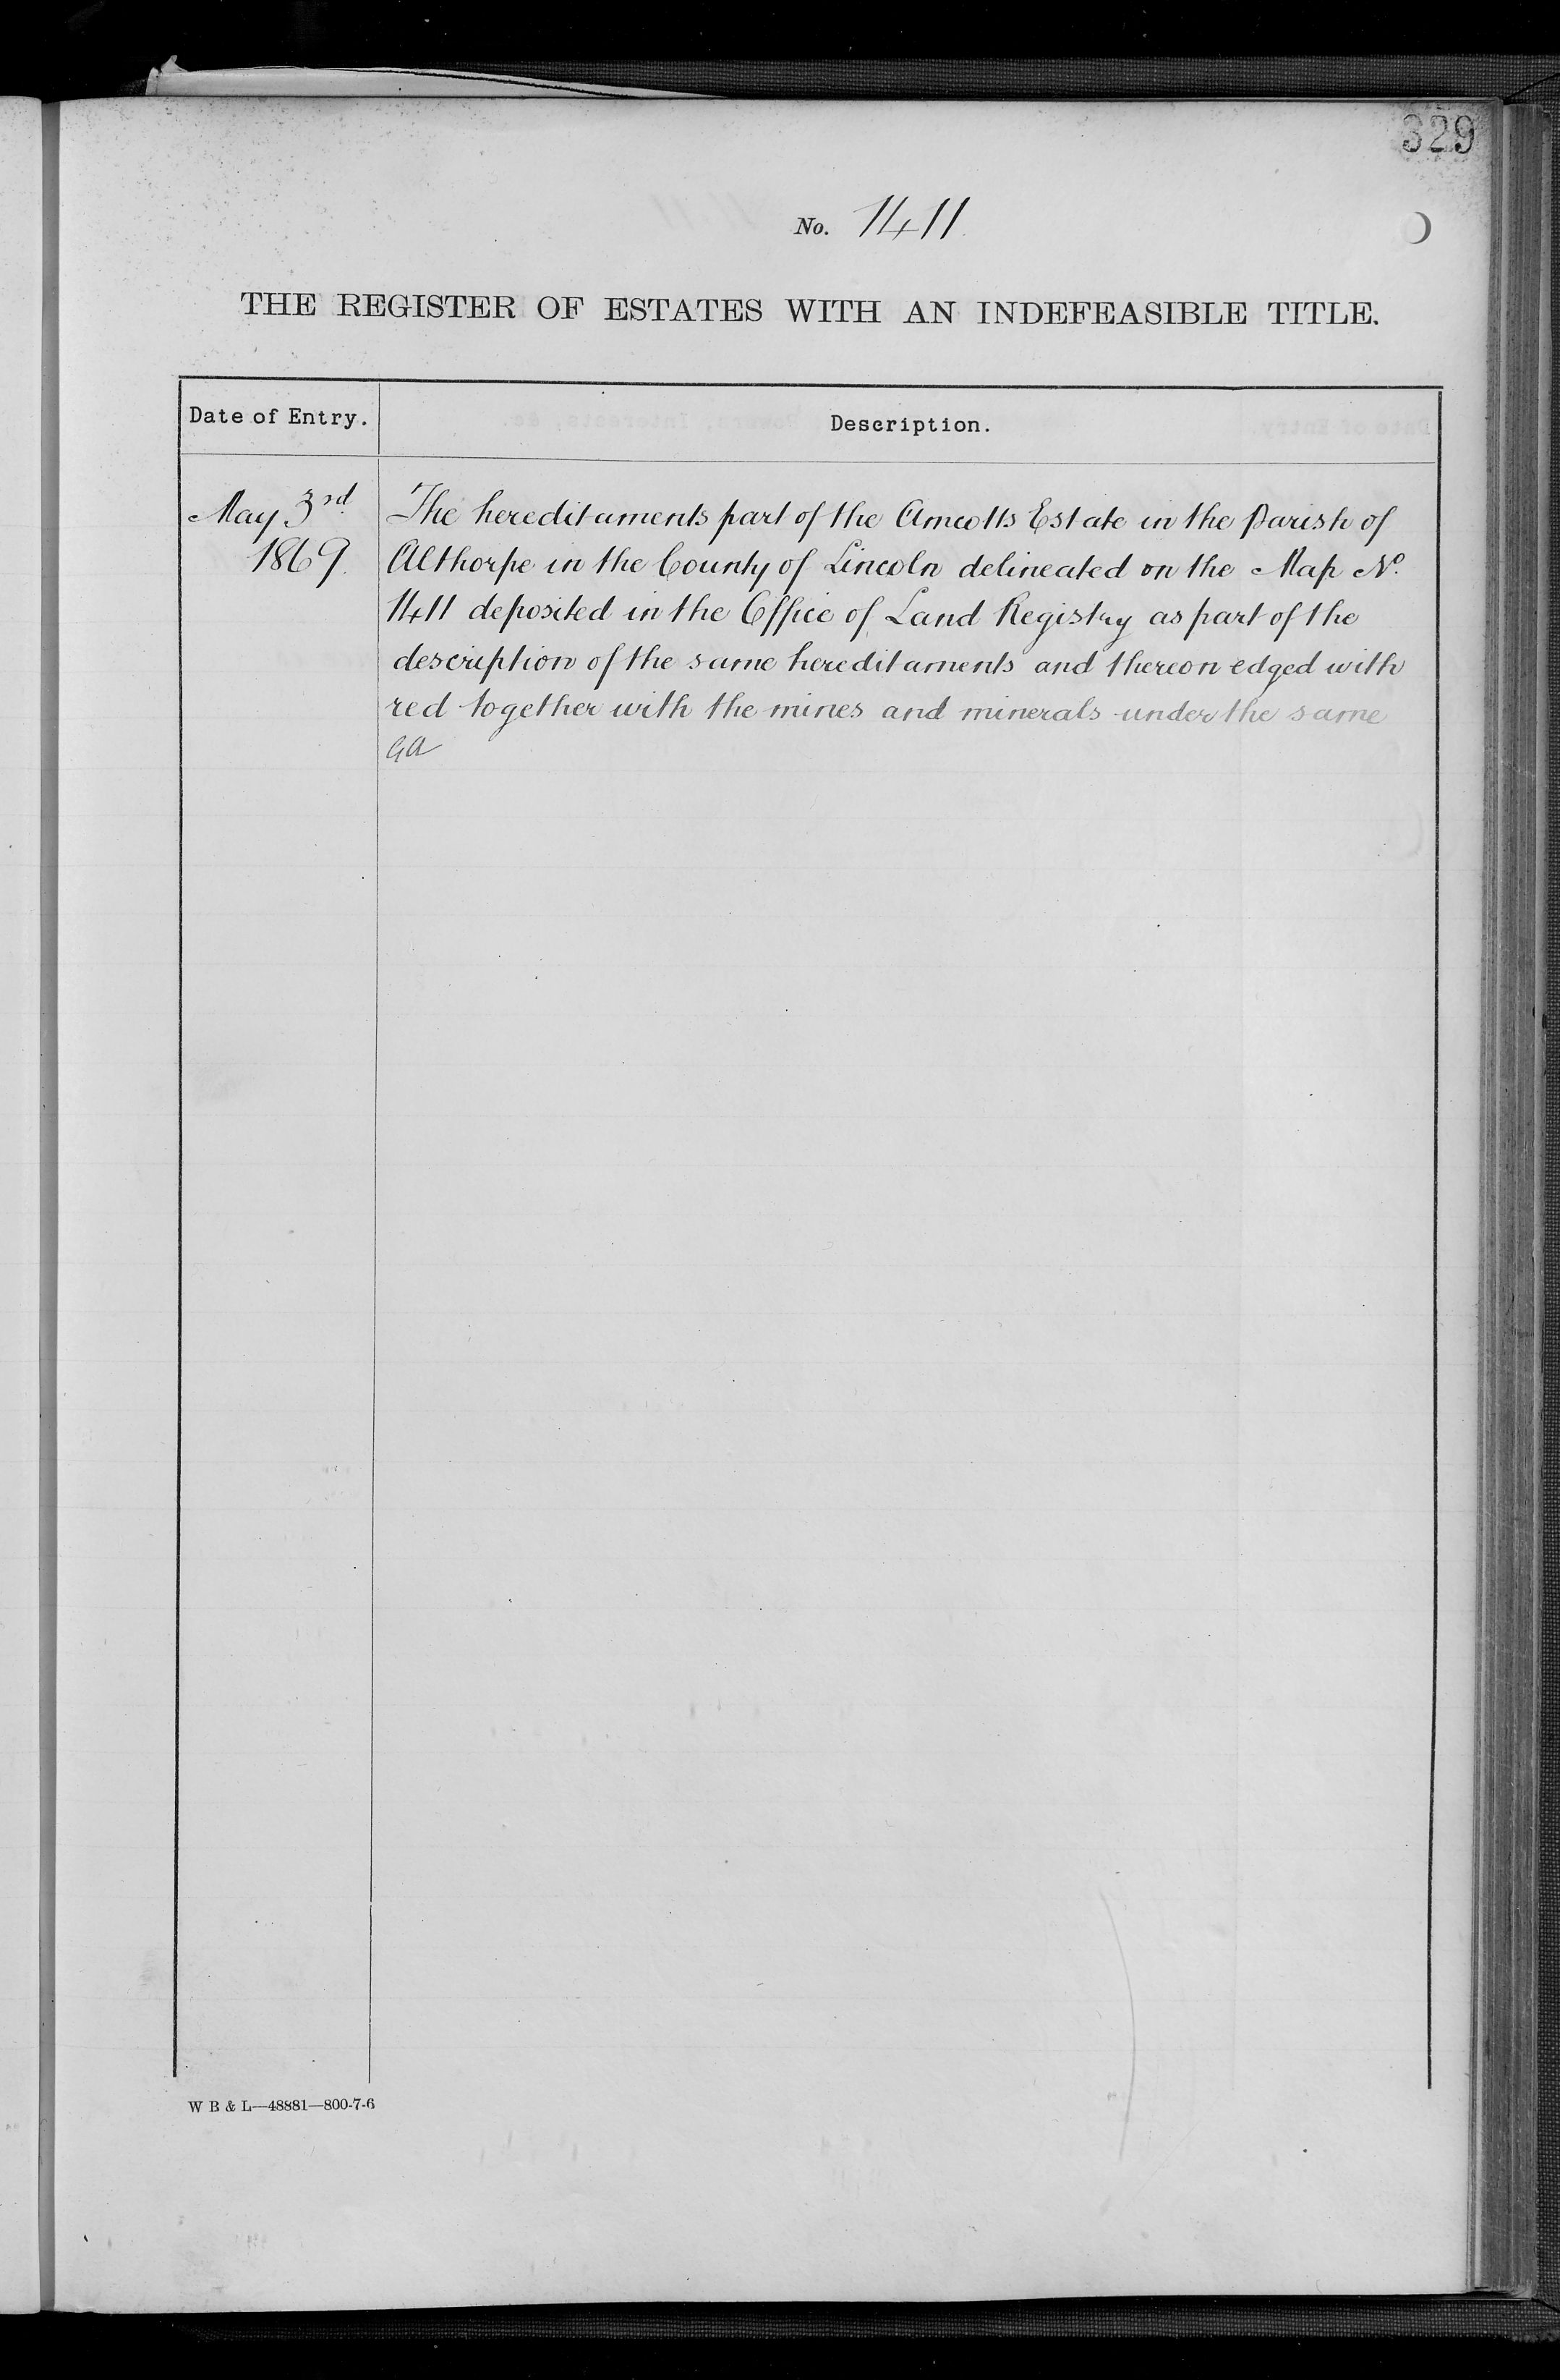 329
No. 1411
THE REGISTER OF ESTATES WITH AN INDEFEASIBLE TITLE.
Date of Entry.
Description.
May 3rd.
1869.
The hereditaments part of the Amcotts Estate in the Parish of
Althorpe in the County of Lincoln delineated on the Map No.
1411 deposited in the Office of Land Registry as part of the
description of the same hereditaments and thereon edged with
red together with the mines and minerals under the same
GA
W B & L—48881—800-7-6